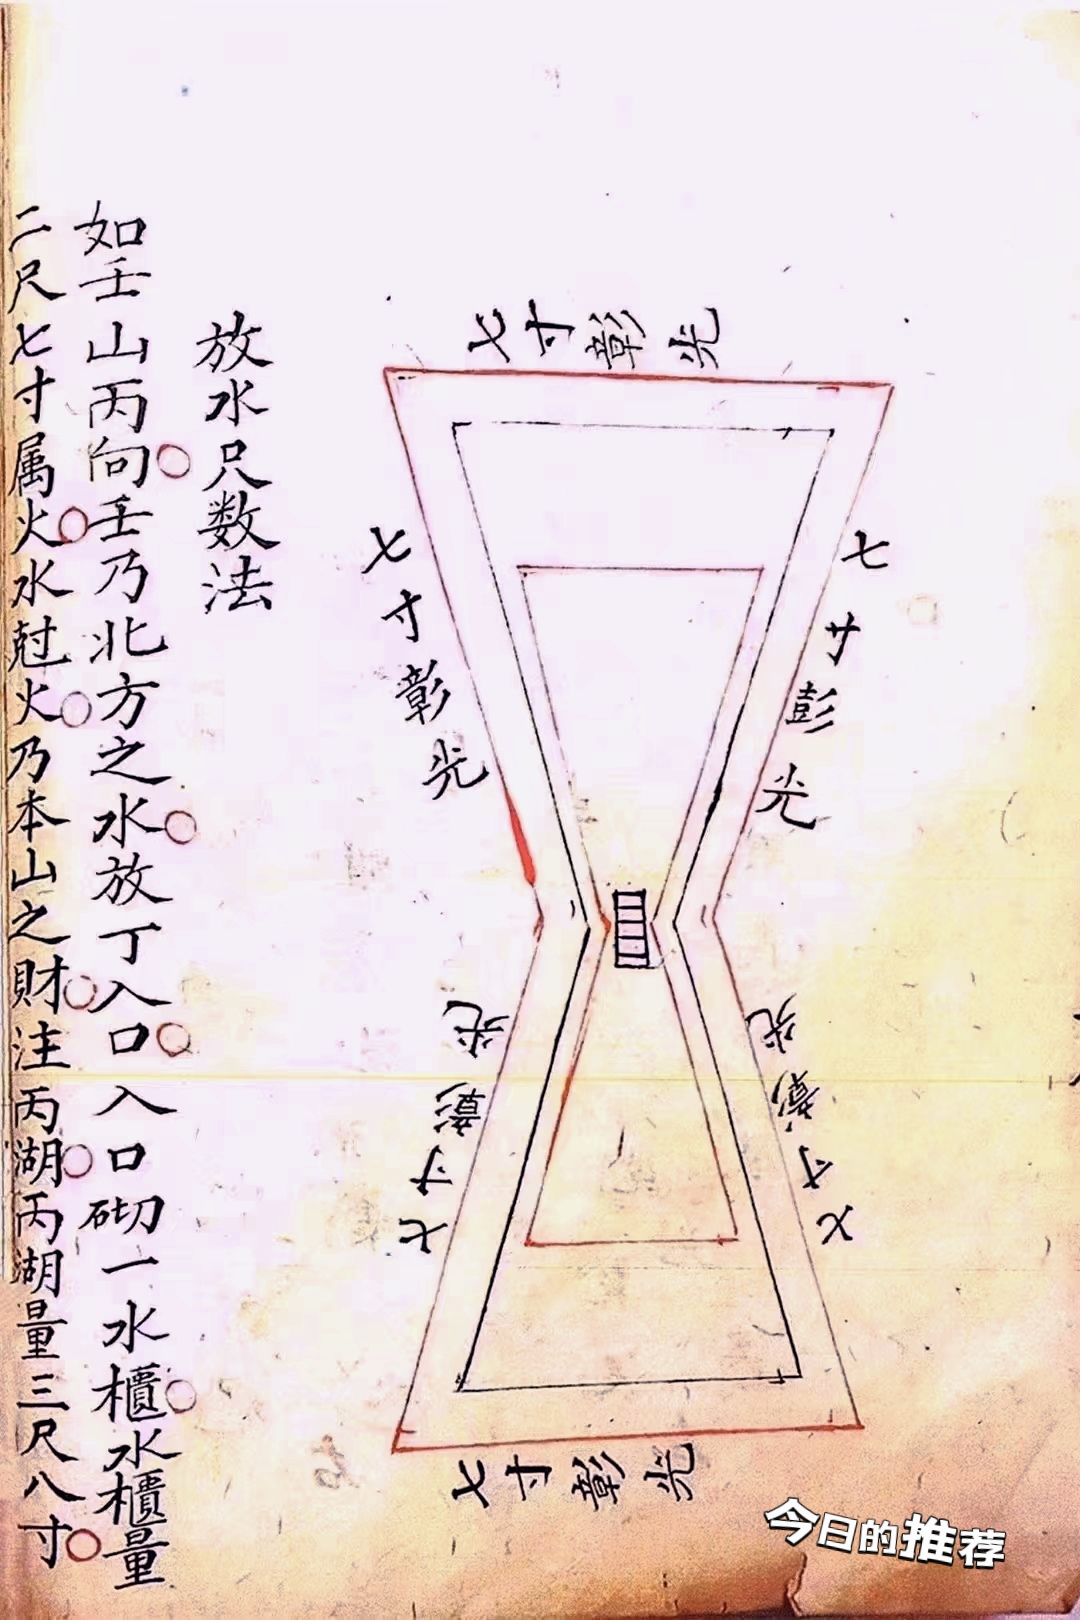 七寸彰光
七寸彭光
七寸彰光
七寸彰光
七寸彰光
七寸彰光
放水尺数法
如壬山丙向壬乃北方之水放丁入口入口砌一水櫃水櫃量
二尺七寸属火水尅火乃本山之財注丙湖丙湖量三尺八寸
今日的推荐